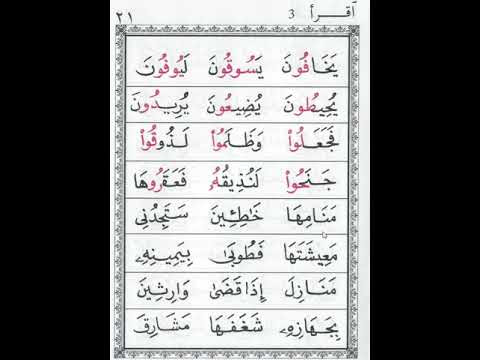 اَقـرأ 3 ٢١
يَخَافُونَ يَسُوقُونَ لَيُوفُونَ
يُحِيطُونَ يُضِيعُونَ يُرِيدُونَ
فَجَعَلُوا۟ وَظَلَمُوا۟ لَذُوقُوا۟
جَنَحُوا۟ لَنُذِيقُهُۥ فَعَقَرُوهَا
مَنَامِهَا خَاطِئِينَ سَتَجِدُنِي
مَعِيشَتَهَا فَطُوبَىٰ بِيَمِينِهِۦ
مَنَازِلَ إِذَا قَضَىٰ وَارِثِينَ
بِجَهَازِهِۦ شَغَفَهَا مَشَارِقَ